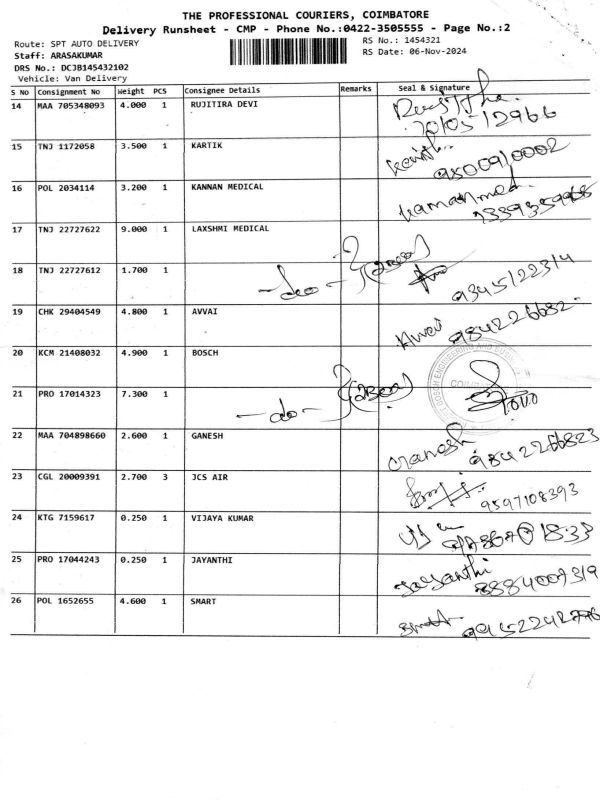 THE PROFESSIONAL COURIERS, COIMBATORE
Delivery Runsheet - CMP - Phone No.:0422-3505555 - Page No.:2
Route: SPT AUTO DELIVERY RS No.: 1454321
Staff: ARASAKUMAR RS Date: 06-Nov-2024
DRS No.: DCJB145432102
Vehicle: Van Delivery
S No Consignment No Weight PCS Consignee Details Remarks Seal & Signature
14 MAA 705348093 4.000 1 RUJITIRA DEVI
15 TNJ 1172058 3.500 1 KARTIK
9500910002
16 POL 2034114 3.200 1 KANNAN MEDICAL
17 TNJ 22727622 9.000 1 LAXSHMI MEDICAL
18 TNJ 22727612 1.700 1 -do-
9345122314
19 CHK 29404549 4.800 1 AVVAI
Avvai 984226682
20 KCM 21408032 4.900 1 BOSCH
21 PRO 17014323 7.300 1 -do-
22 MAA 704898660 2.600 1 GANESH
Ganesh 9842266823
23 CGL 20009391 2.700 3 JCS AIR
9597108393
24 KTG 7159617 0.250 1 VIJAYA KUMAR
25 PRO 17044243 0.250 1 JAYANTHI
Jayanthi
26 POL 1652655 4.600 1 SMART